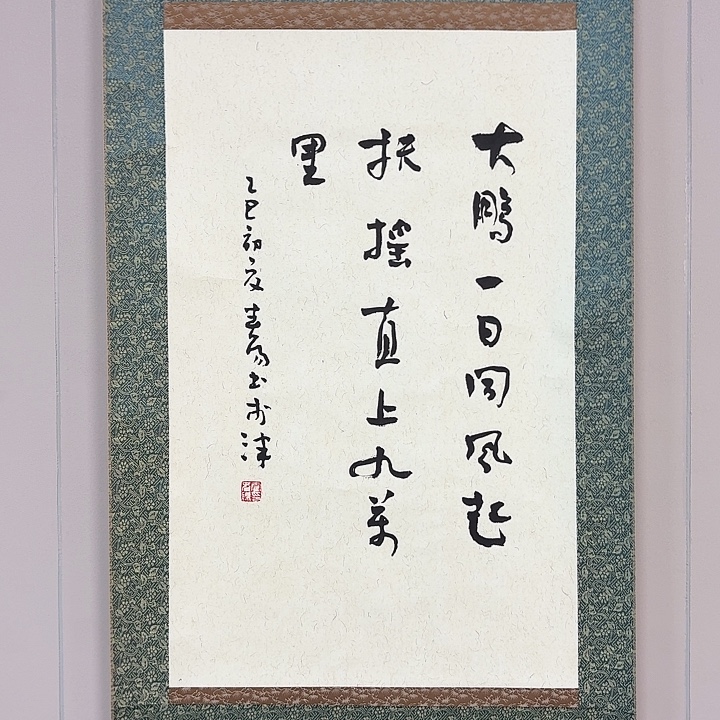 大鹏一日同风起
扶摇直上九万
里
乙巳初夏春阳书于津